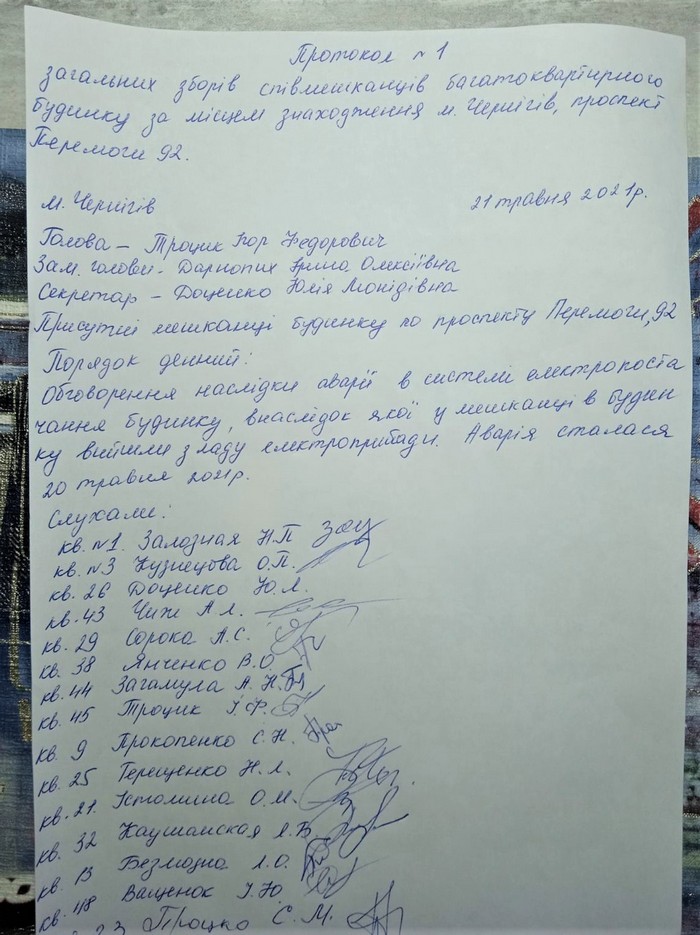 Протокол №1
загальних зборів співмешканців багатоквартирного
будинку за місцем знаходження м. Чернігів, проспект
Перемоги 92.
м. Чернігів 21 травня 2021р.
Голова – Троцик Ігор Федорович
Зам. голови - Ірина Олексіївна
Секретар – Доценко Юлія Леонідівна
Присутні мешканці будинку по проспекту Перемоги, 92
Порядок денний:
Обговорення наслідки аварії в системі електропоста
чання будинку, внаслідок якої у мешканців будин
ку вийшли з ладу електроприбади. Аварія сталася
20 травня 2021р.
Слухали:
кв. №1. Залозная Н.П
кв. №3 Кузнецова О.П.
кв. 26 Доценко Ю.Л.
кв. 43 Чиж А.Л.
кв. 29 Сорока А.С.
кв. 38 Янченко В.О.
кв. 44 Загамула А.Н.
кв. 45 Троцик І.Ф.
кв. 9 Прокопенко С.Н.
кв. 25 Терещенко Н.Л.
кв. 21. Істомина О.М.
кв. 32 Каушанская Л.В.
кв. 13 Л.О.
кв. 48 Ващенок І.Ю.
23 Процко С.М.